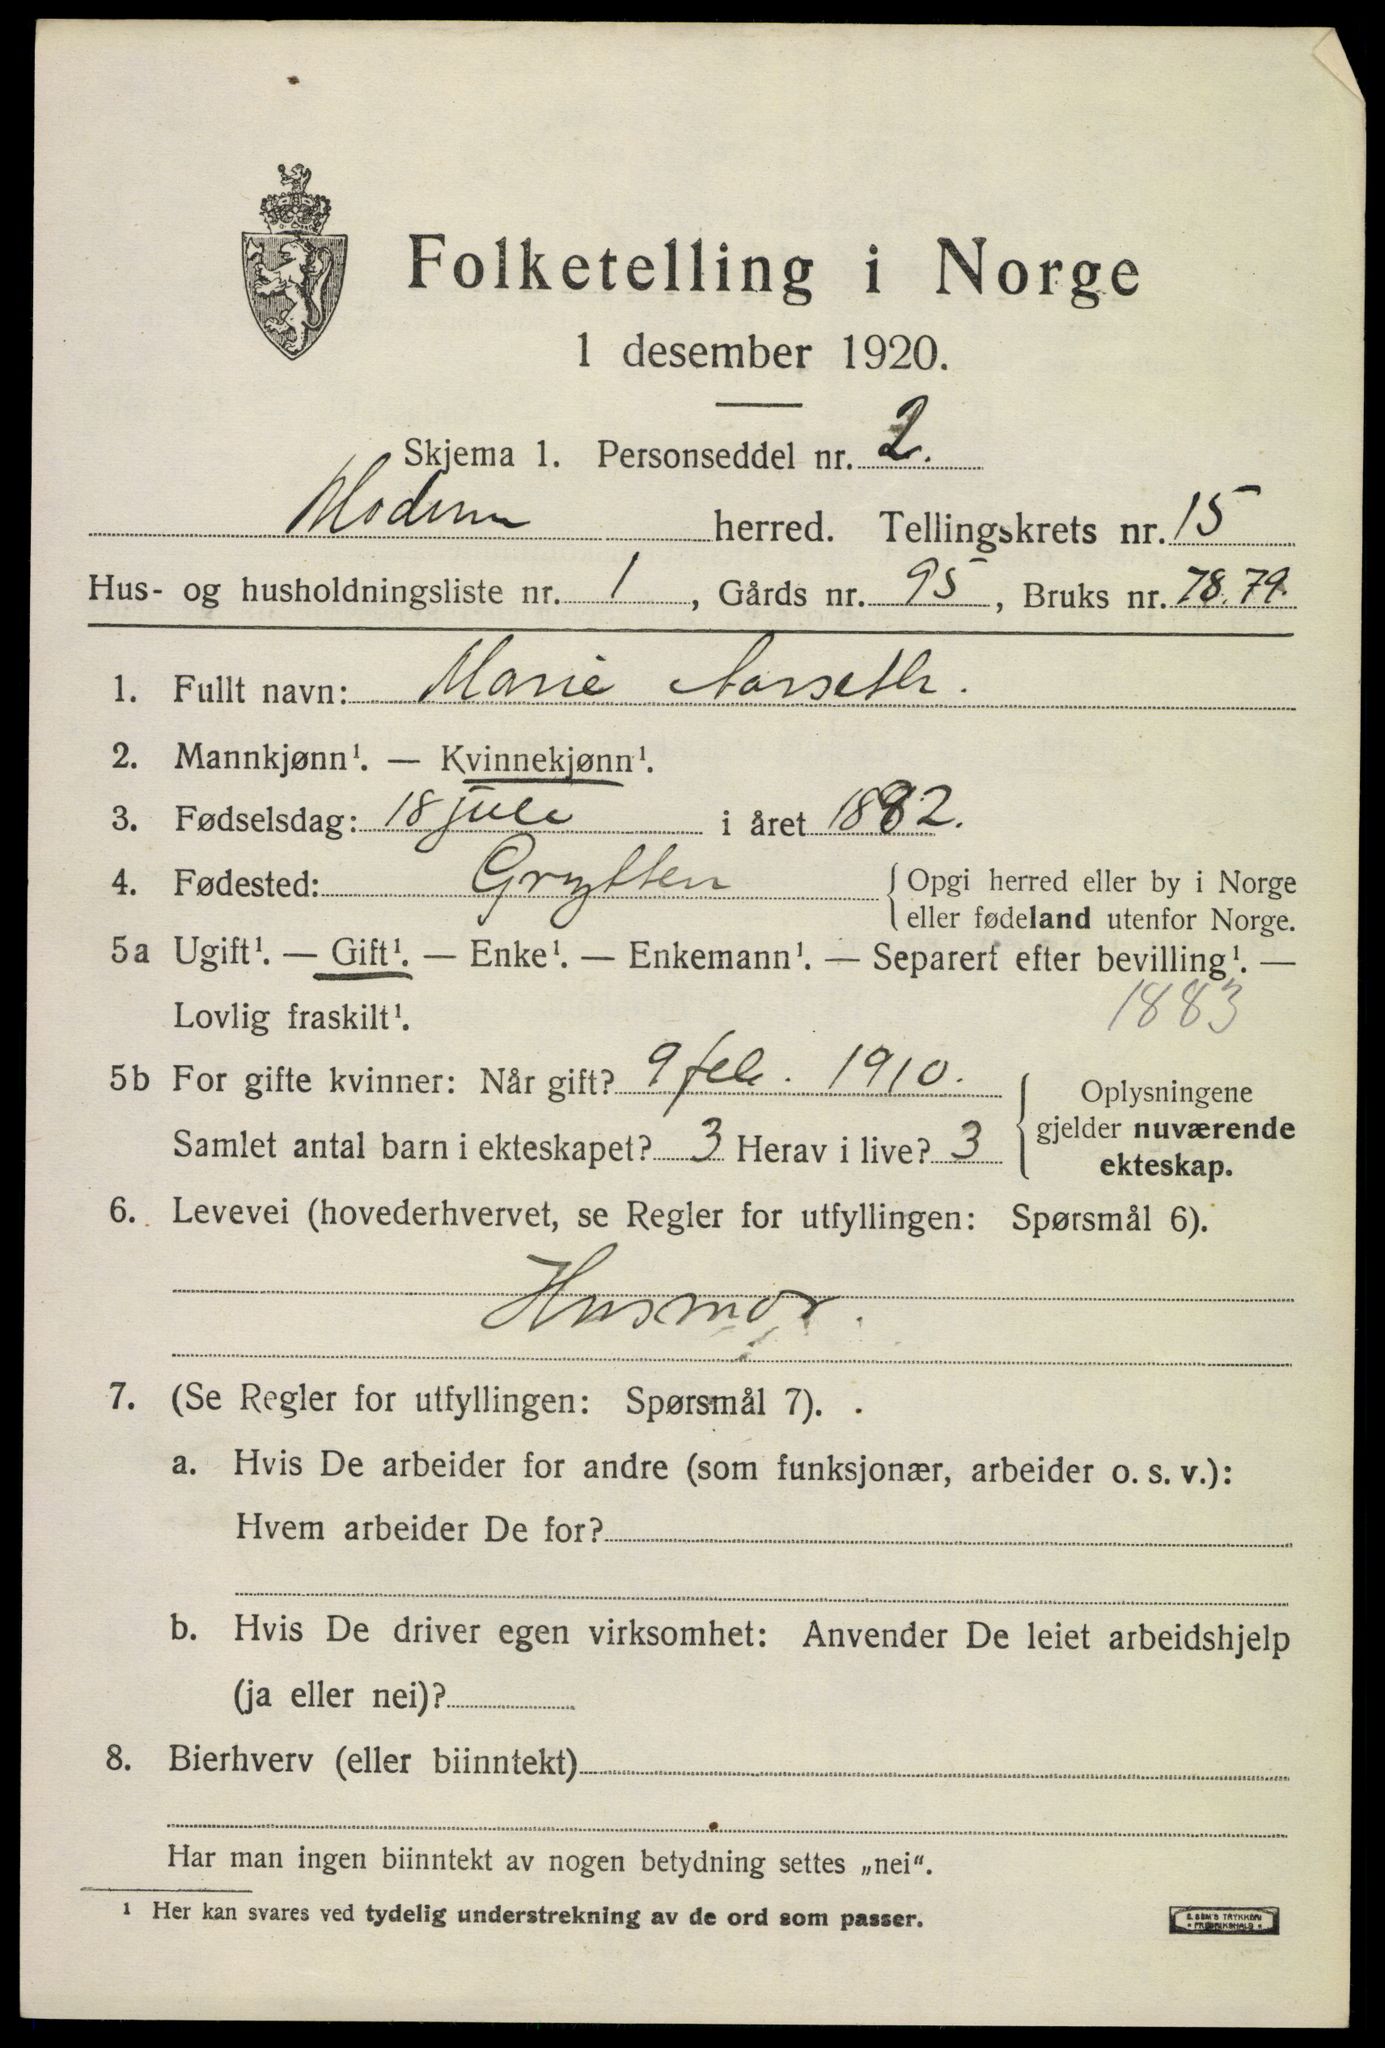 Folketelling i Norge
1 desember 1920.
Skjema 1. Personseddel nr. 2.
Modum herred. Tellingskrets nr. 15
Hus- og husholdningsliste nr. 1, Gårds nr. 95, Bruks nr. 78.79.
1. Fullt navn: Marie Aarseth.
2. Mannkjønn¹. — Kvinnekjønn¹.
3. Fødselsdag: 18 juli i året 1882.
4. Fødested: Grytten { Opgi herred eller by i Norge
eller fødeland utenfor Norge.
5a Ugift¹. — Gift¹. — Enke¹. — Enkemann¹. — Separert efter bevilling¹. —
Lovlig fraskilt¹. 1883
5b For gifte kvinner: Når gift? 9 feb. 1910. { Oplysningene
gjelder nuværende
Samlet antal barn i ekteskapet? 3 Herav i live? 3
ekteskap.
6. Levevei (hovederhvervet, se Regler for utfyllingen: Spørsmål 6).
Husmor.
7. (Se Regler for utfyllingen: Spørsmål 7).
a. Hvis De arbeider for andre (som funksjonær, arbeider o. s. v.):
Hvem arbeider De for?
b. Hvis De driver egen virksomhet: Anvender De leiet arbeidshjelp
(ja eller nei)?
8. Bierhverv (eller biinntekt)
Har man ingen biinntekt av nogen betydning settes „nei“.
¹ Her kan svares ved tydelig understrekning av de ord som passer.
E. SEM'S TRYKKERI
• FREDRIKSHALD •